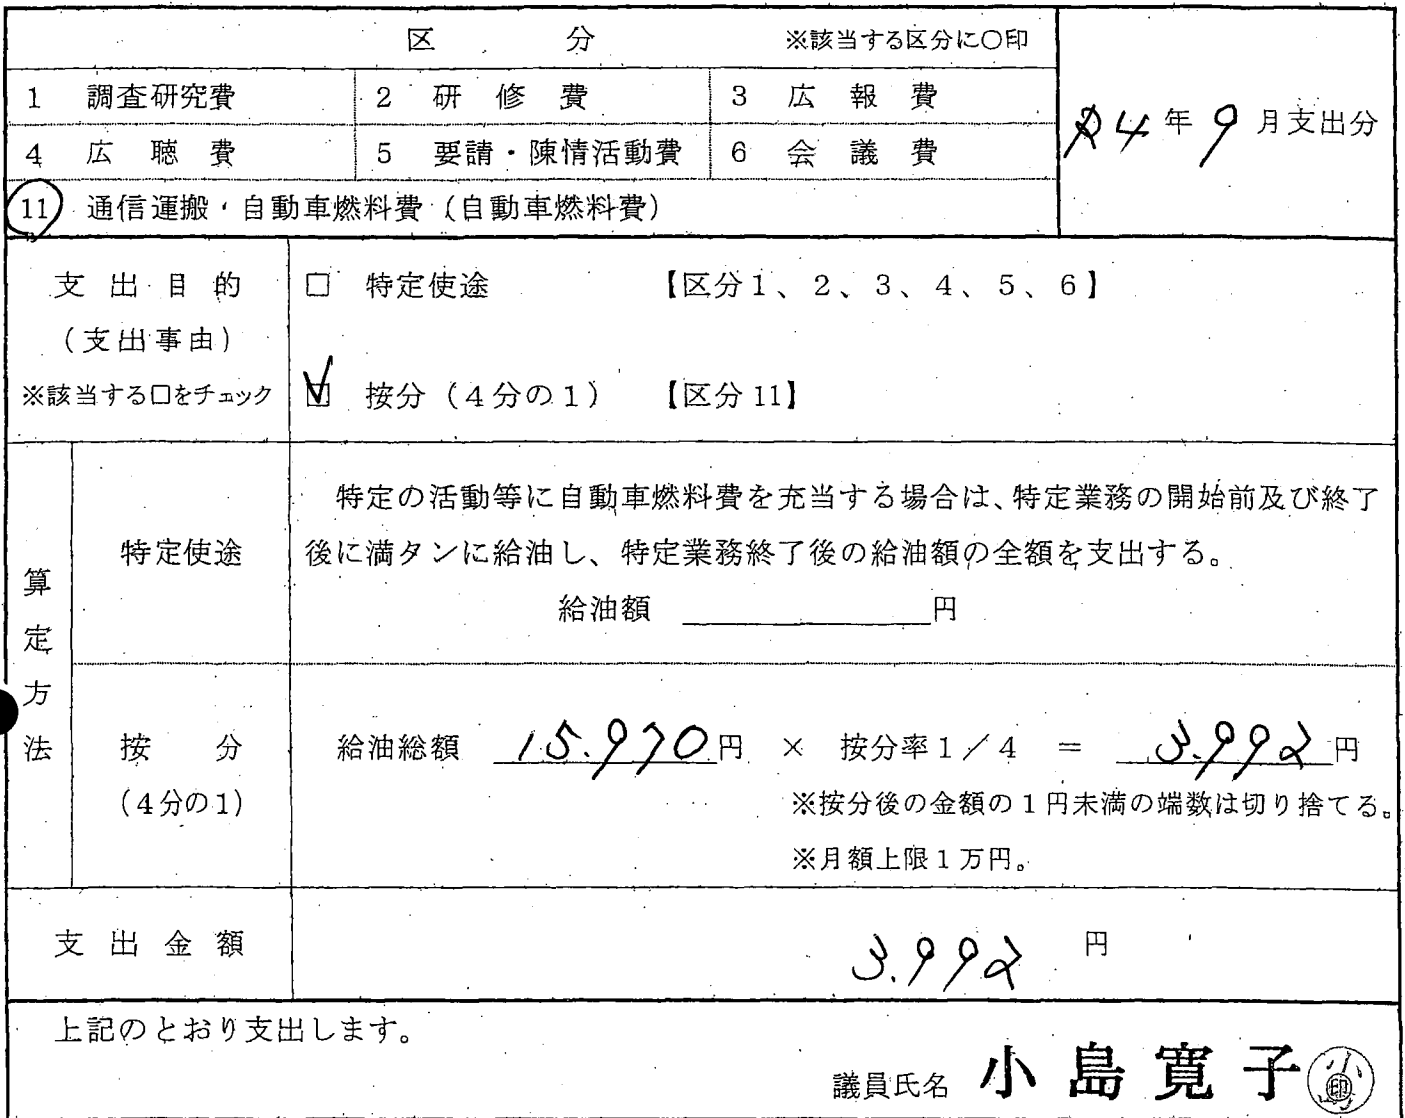 区 分 ※該当する区分に○印
1 調査研究費 2 研修費 3 広報費
R4年9月支出分
4 広聴費 5 要請・陳情活動費 6 会議費
11 通信運搬・自動車燃料費（自動車燃料費）
支出目的
（支出事由）
※該当する□をチェック
□ 特定使途 【区分1、2、3、4、5、6】
☑ 按分（4分の1） 【区分11】
算定方法
特定使途
特定の活動等に自動車燃料費を充当する場合は、特定業務の開始前及び終了
後に満タンに給油し、特定業務終了後の給油額の全額を支出する。
給油額 円
按分
（4分の1）
給油総額 15.970円 × 按分率1／4 ＝ 3.992円
※按分後の金額の1円未満の端数は切り捨てる。
※月額上限1万円。
支出金額 3.992 円
上記のとおり支出します。
議員氏名 小島寛子 印